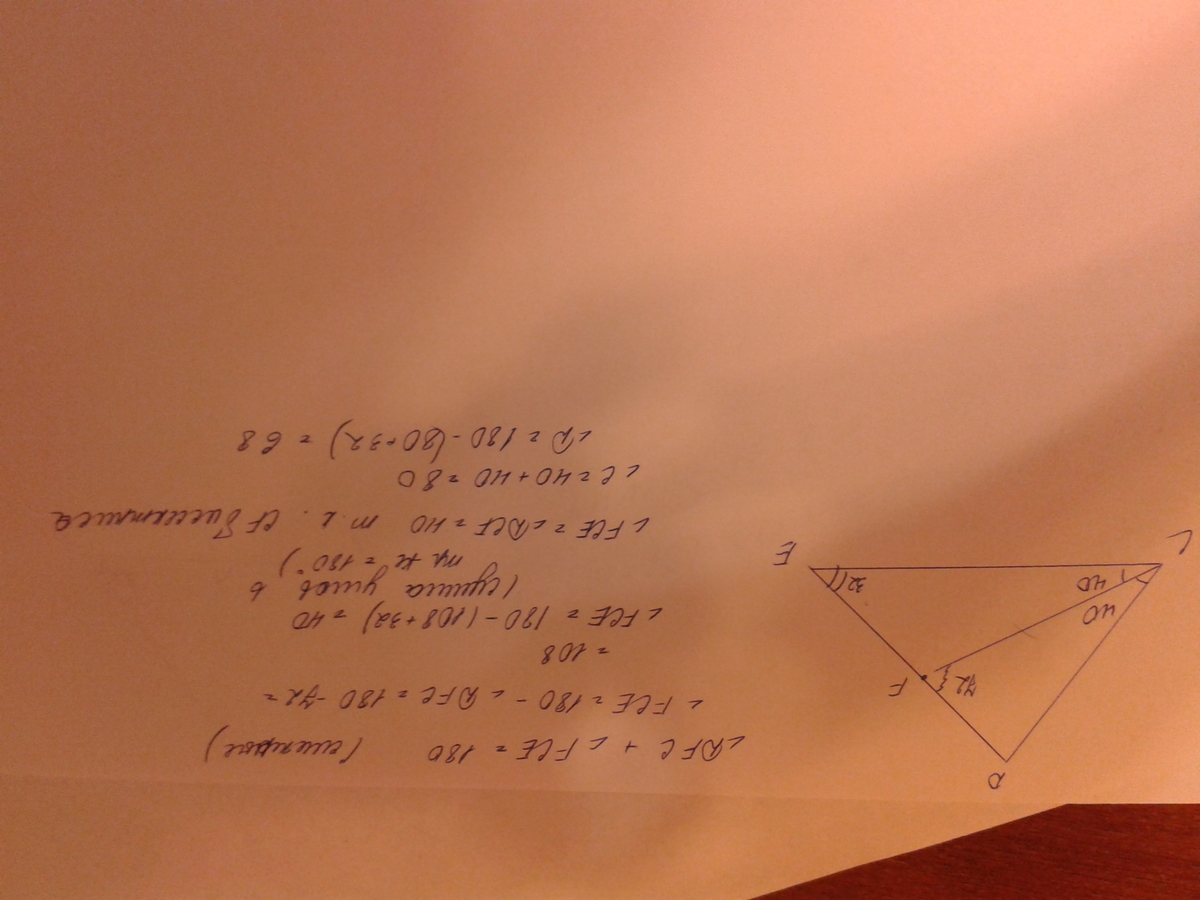 D
F
72
40
40
32
C
E
∠DFC + ∠FCE = 180 (смежные)
∠FCE = 180 - ∠DFC = 180 - 72 =
= 108
∠FCE = 180 - (108+32) = 40
(сумма углов в
тр-ке = 180°)
∠FCE = ∠DCF = 40 т.к. CF биссектриса
∠C = 40 + 40 = 80
∠D = 180 - (80+32) = 68